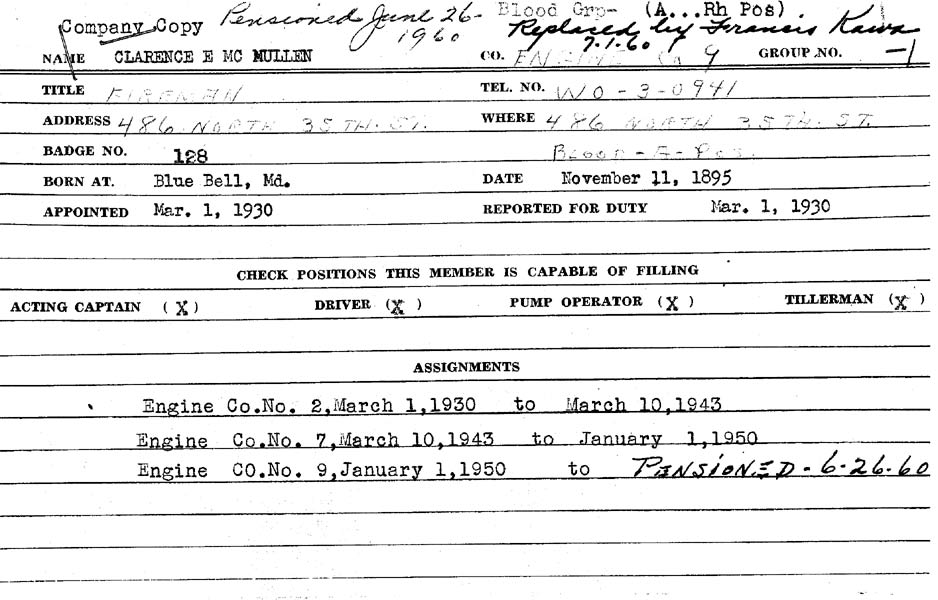 Company Copy Pensioned June 26- Blood Grp- (A...Rh Pos)
1960 Replaced by Francis Kawa
7.1.60
NAME CLARENCE E MC MULLEN CO. ENGINE Co 9 GROUP NO. -1
TITLE FIREMAN TEL. NO. WO-3-0941
ADDRESS 486 NORTH 35TH. ST. WHERE 486 NORTH 35TH. ST.
BADGE NO. 128 BLOOD-A-POS.
BORN AT. Blue Bell, Md. DATE November 11, 1895
APPOINTED Mar. 1, 1930 REPORTED FOR DUTY Mar. 1, 1930
CHECK POSITIONS THIS MEMBER IS CAPABLE OF FILLING
ACTING CAPTAIN (X) DRIVER (X) PUMP OPERATOR (X) TILLERMAN (X)
ASSIGNMENTS
Engine Co.No. 2,March 1,1930 to March 10,1943
Engine Co.No. 7,March 10,1943 to January 1,1950
Engine CO.No. 9,January 1,1950 to PENSIONED-6-26-60